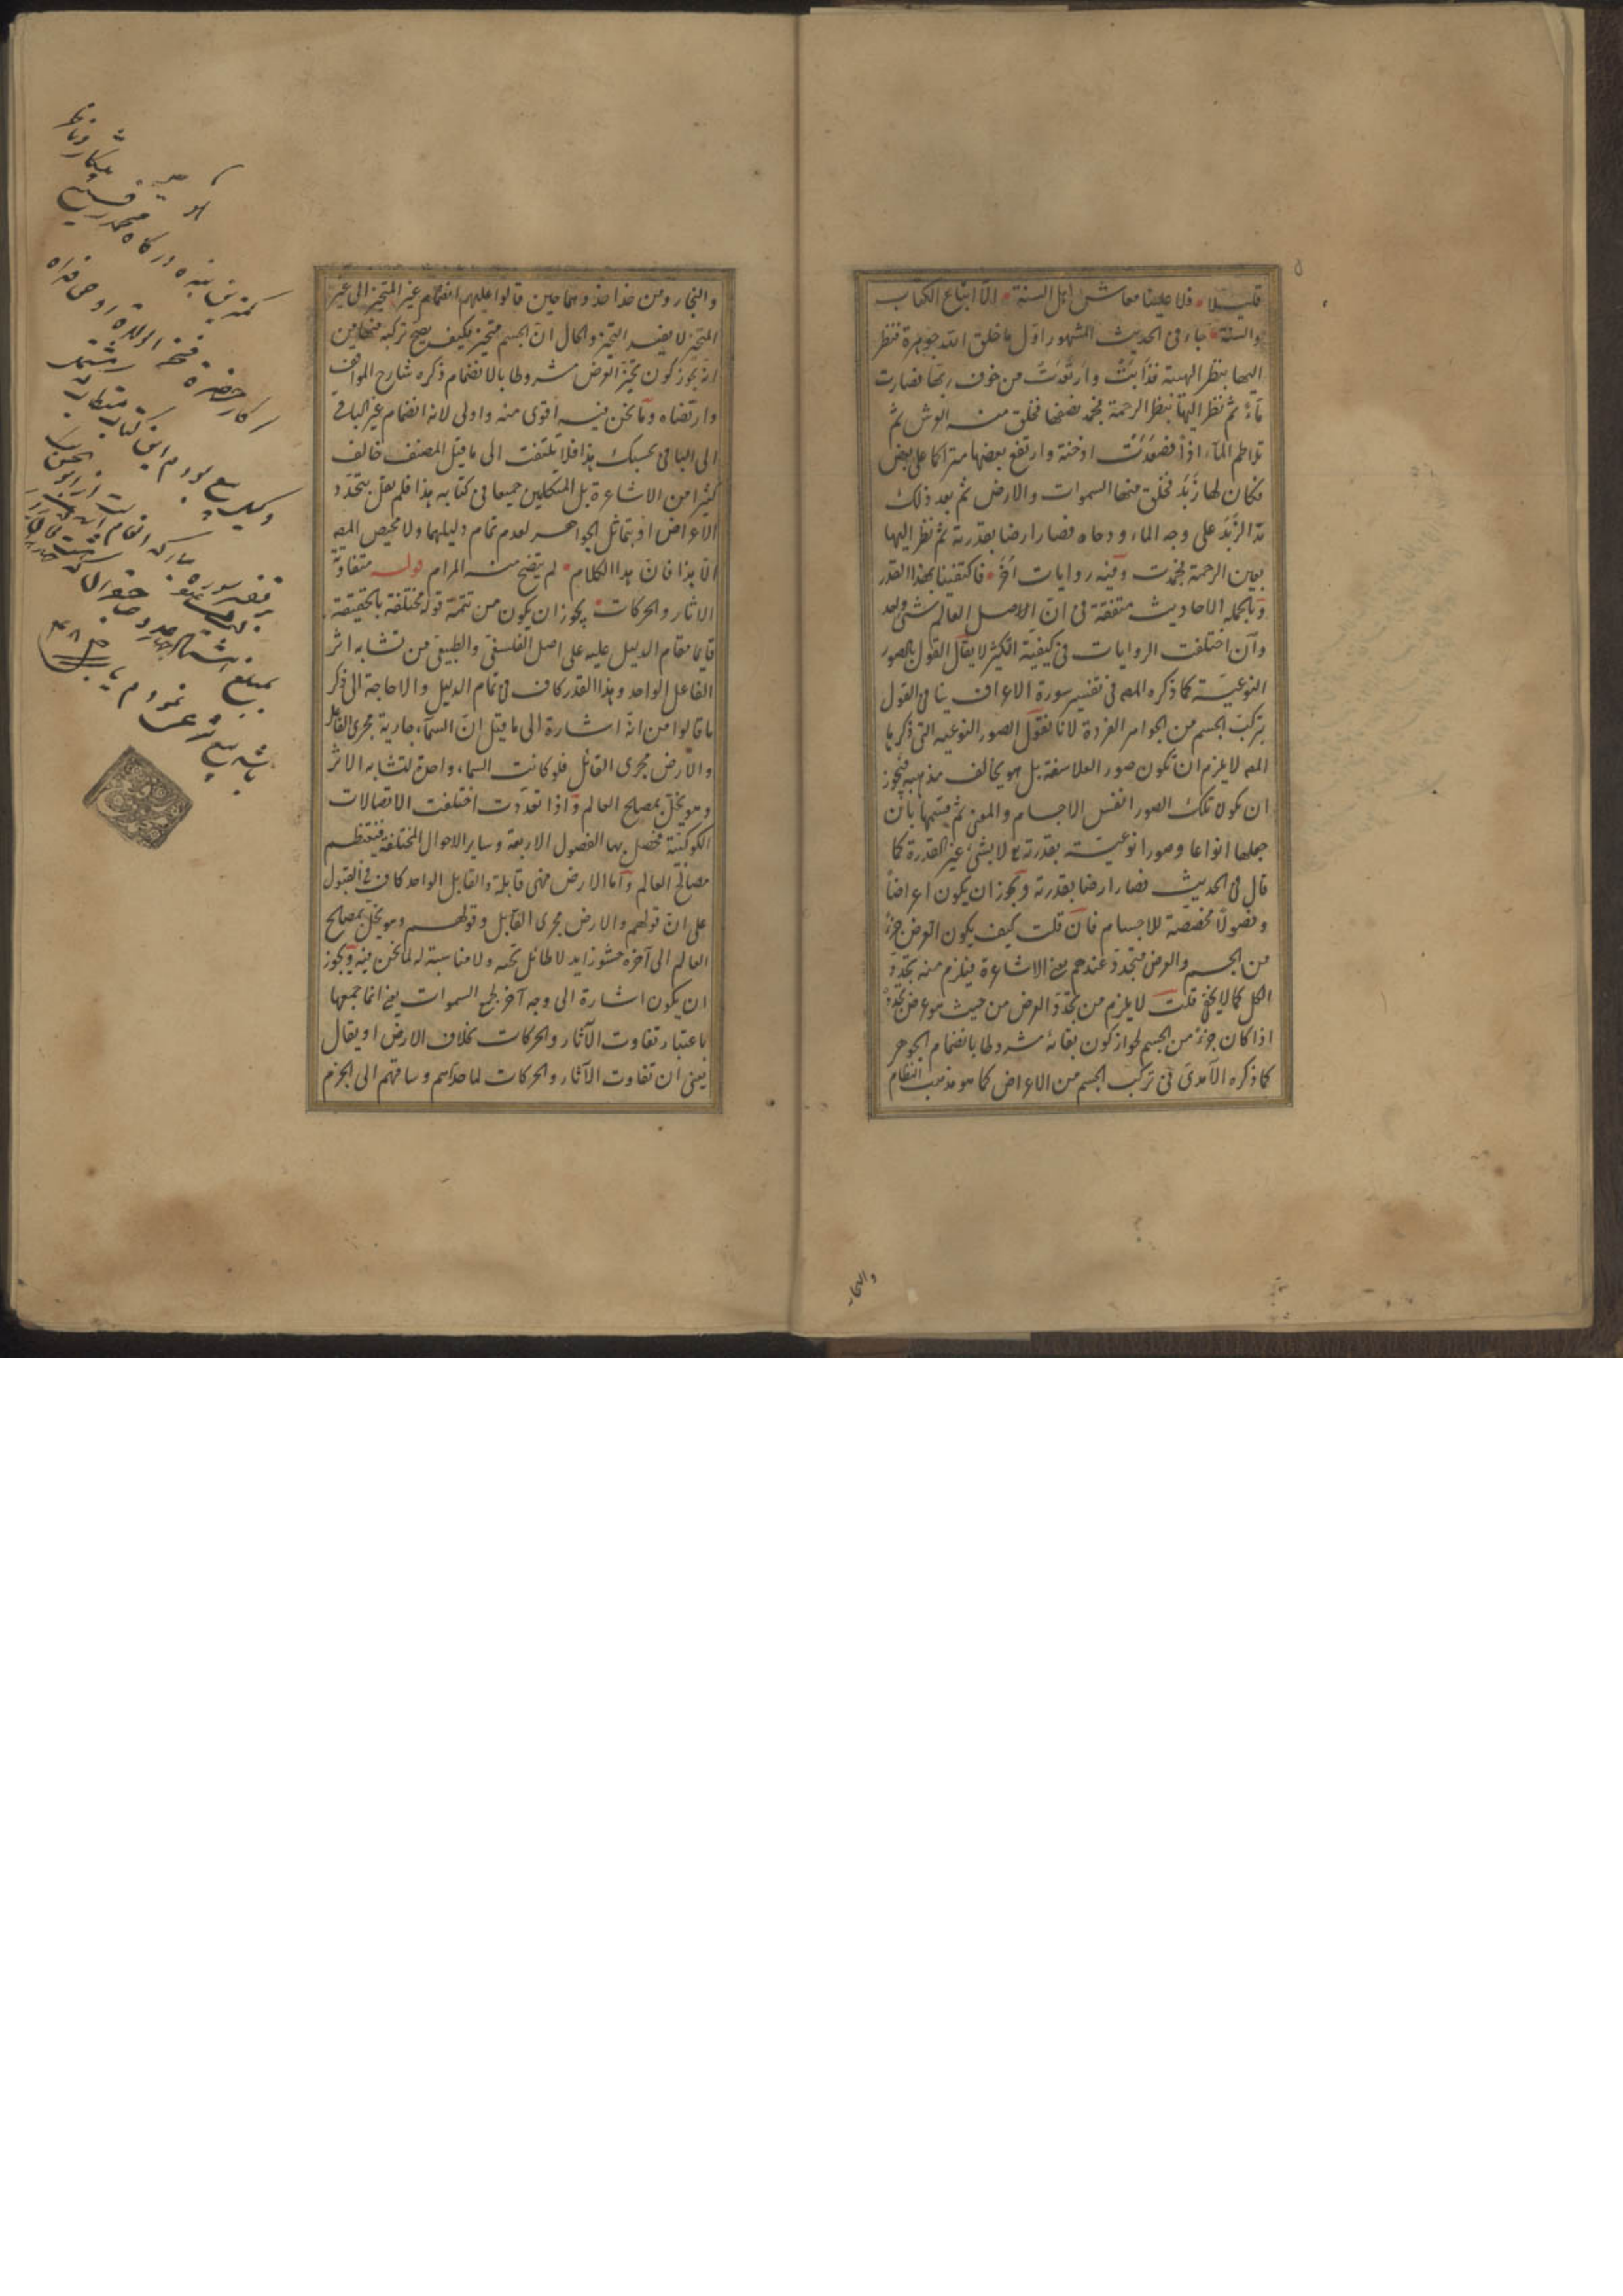 قليلا فلا علينا معاشر اهل السنة الا اتباع الكتاب
والسنة جاء فى الحديث المشهور اول ما خلق الله جوهرة فنظر
اليها بنظر الهيبة فذابت وارتعدت من خوف ربها فصارت
ماء ثم نظر اليها بنظر الرحمة فجمد نصفها فخلق منه العرش ثم
تلاطم الماء اذا فصعدت ادخنة وارتفع بعضها متراكما على بعض
فكان لها زبد فخلق منها السموات والارض ثم بعد ذلك
مد الزبد على وجه الماء ودحاه فصار ارضا بقدرته ثم نظر اليها
بعين الرحمة فجمدت وفيه روايات أخر فاكتفينا بهذا القدر
وبالجملة الاحاديث متفقة فى ان الاصل العالم شئ واحد
وان اختلفت الروايات فى كيفية التكثر لا يقال القول بالصور
النوعية كما ذكره المص فى تفسير سورة الاعراف ينافى القول
بتركب الجسم من الجواهر الفردة لانا نقول الصور النوعية التى ذكرها
المص لا يلزم ان تكون صور الفلاسفة بل هو يخالف مذهبه فيجوز
ان يكون تلك الصور انفس الاجسام والمعنى ثم قسمها بان
جعلها انواعا وصورا نوعية بقدرته لا بشئ غير القدرة كما
قال فى الحديث فصار ارضا بقدرته ويجوز ان يكون اعراضا
وفصولا مخصصة للاجسام فان قلت كيف يكون العرض جزء
من الجسم والعرض متجدد عندهم يعنى الاشاعرة فيلزم منه تجدد
الكل كما لا يخفى قلت لا يلزم من تجدد العرض من حيث هو عرض تجدده
اذا كان جزء من الجسم لجواز كون بقائه مشروطا بانضمام الجوهر
كما ذكره الآمدى فى تركب الجسم من الاعراض كما هو مذهب النظام
والنجار
والنجار ومن حذا حذوهما حين قالوا عليهم انضمام غير المتحيز الى غير
المتحيز لا يفيد التحيز والحال ان الجسم متحيز فكيف يصح تركبه منها من
انه يجوز كون تحيز العرض مشروطا بالانضمام ذكره شارح المواقف
وارتضاه وما نحن فيه اقوى منه واولى لانه انضمام غير الباقى
الى الباقى يحسبك هذا فلا تلتفت الى ما قيل المصنف خالف
كثيرا من الاشاعرة بل المتكلمين جميعا فى كتابه هذا فلم يقل بتجدد
الاعراض او بتماثل الجواهر لعدم تمام دليلهما ولا محيص للمص
الا بذا فان هذا الكلام لم يتضح منه المرام قوله متفاوتة
الاثار والحركات يجوز ان يكون من تتمة قوله مختلفة بالحقيقة
قايما مقام الدليل عليه على اصل الفلسفى والطبيعى من تشابه اثر
الفاعل الواحد وهذا القدر كاف فى تمام الدليل ولا حاجة الى ذكر
ما قالوا من انه اشارة الى ما قيل ان السماء جارية مجرى الفاعل
والارض مجرى القابل فلو كانت السماء واحدة لتشابه الاثر
وهو يخل بمصالح العالم واذا تعددت اختلفت الاتصالات
الكوكبية فحصل بها الفصول الاربعة وساير الاحوال المختلفة فينتظم
مصالح العالم واما الارض فهى قابلة والقابل الواحد كاف فى القبول
على ان قولهم والارض مجرى القابل وقولهم وهو يخل بمصالح
العالم الى آخره حشو زايد لا طائل تحته ولا مناسبة له لما نحن فيه ويجوز
ان يكون اشارة الى وجه آخر لجمع السموات يعنى انما جمعها
باعتبار تفاوت الآثار والحركات بخلاف الارض او يقال
يعنى ان تفاوت الآثار والحركات لما حداهم وساقهم الى الجزم
كمترين بنده درگاه محمد رفيع